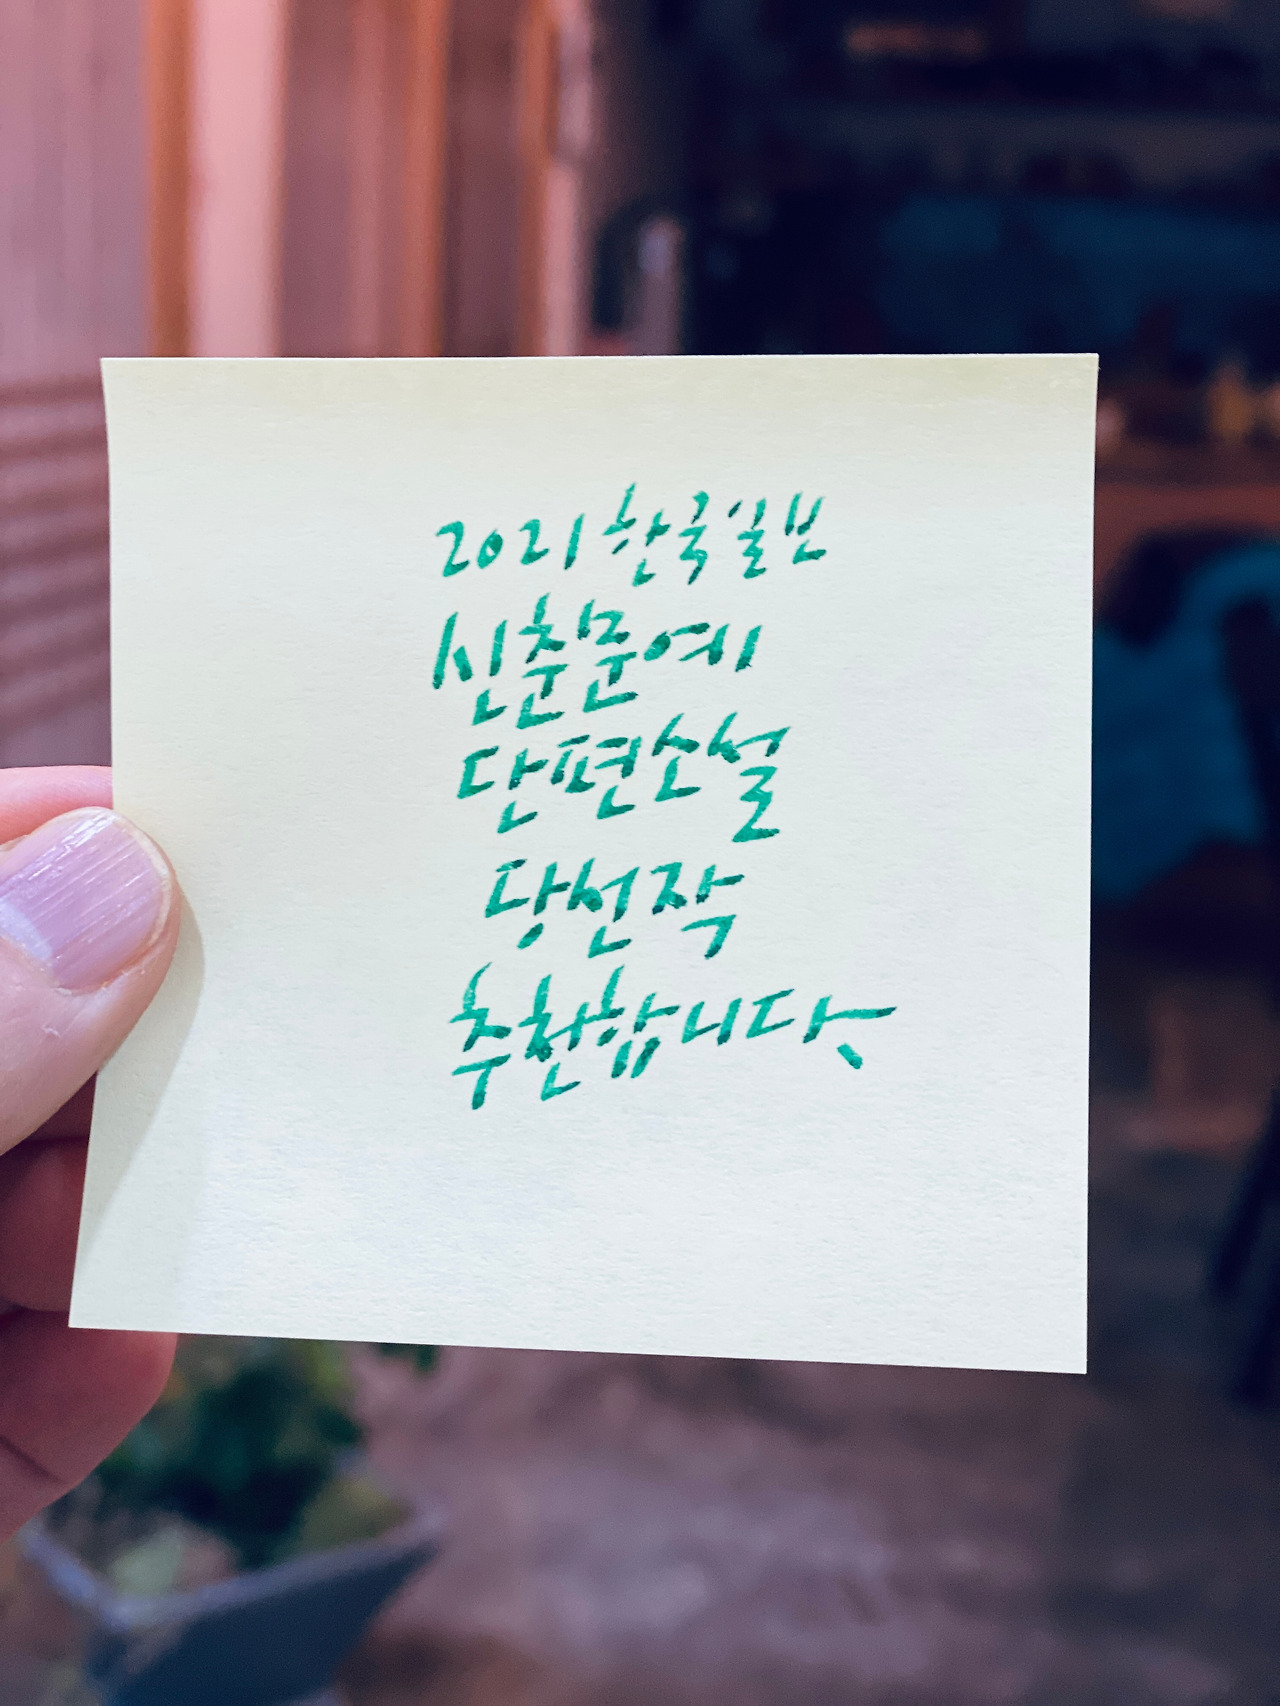 2021 한국일보
신춘문예
단편소설
당선작
추천합니다.